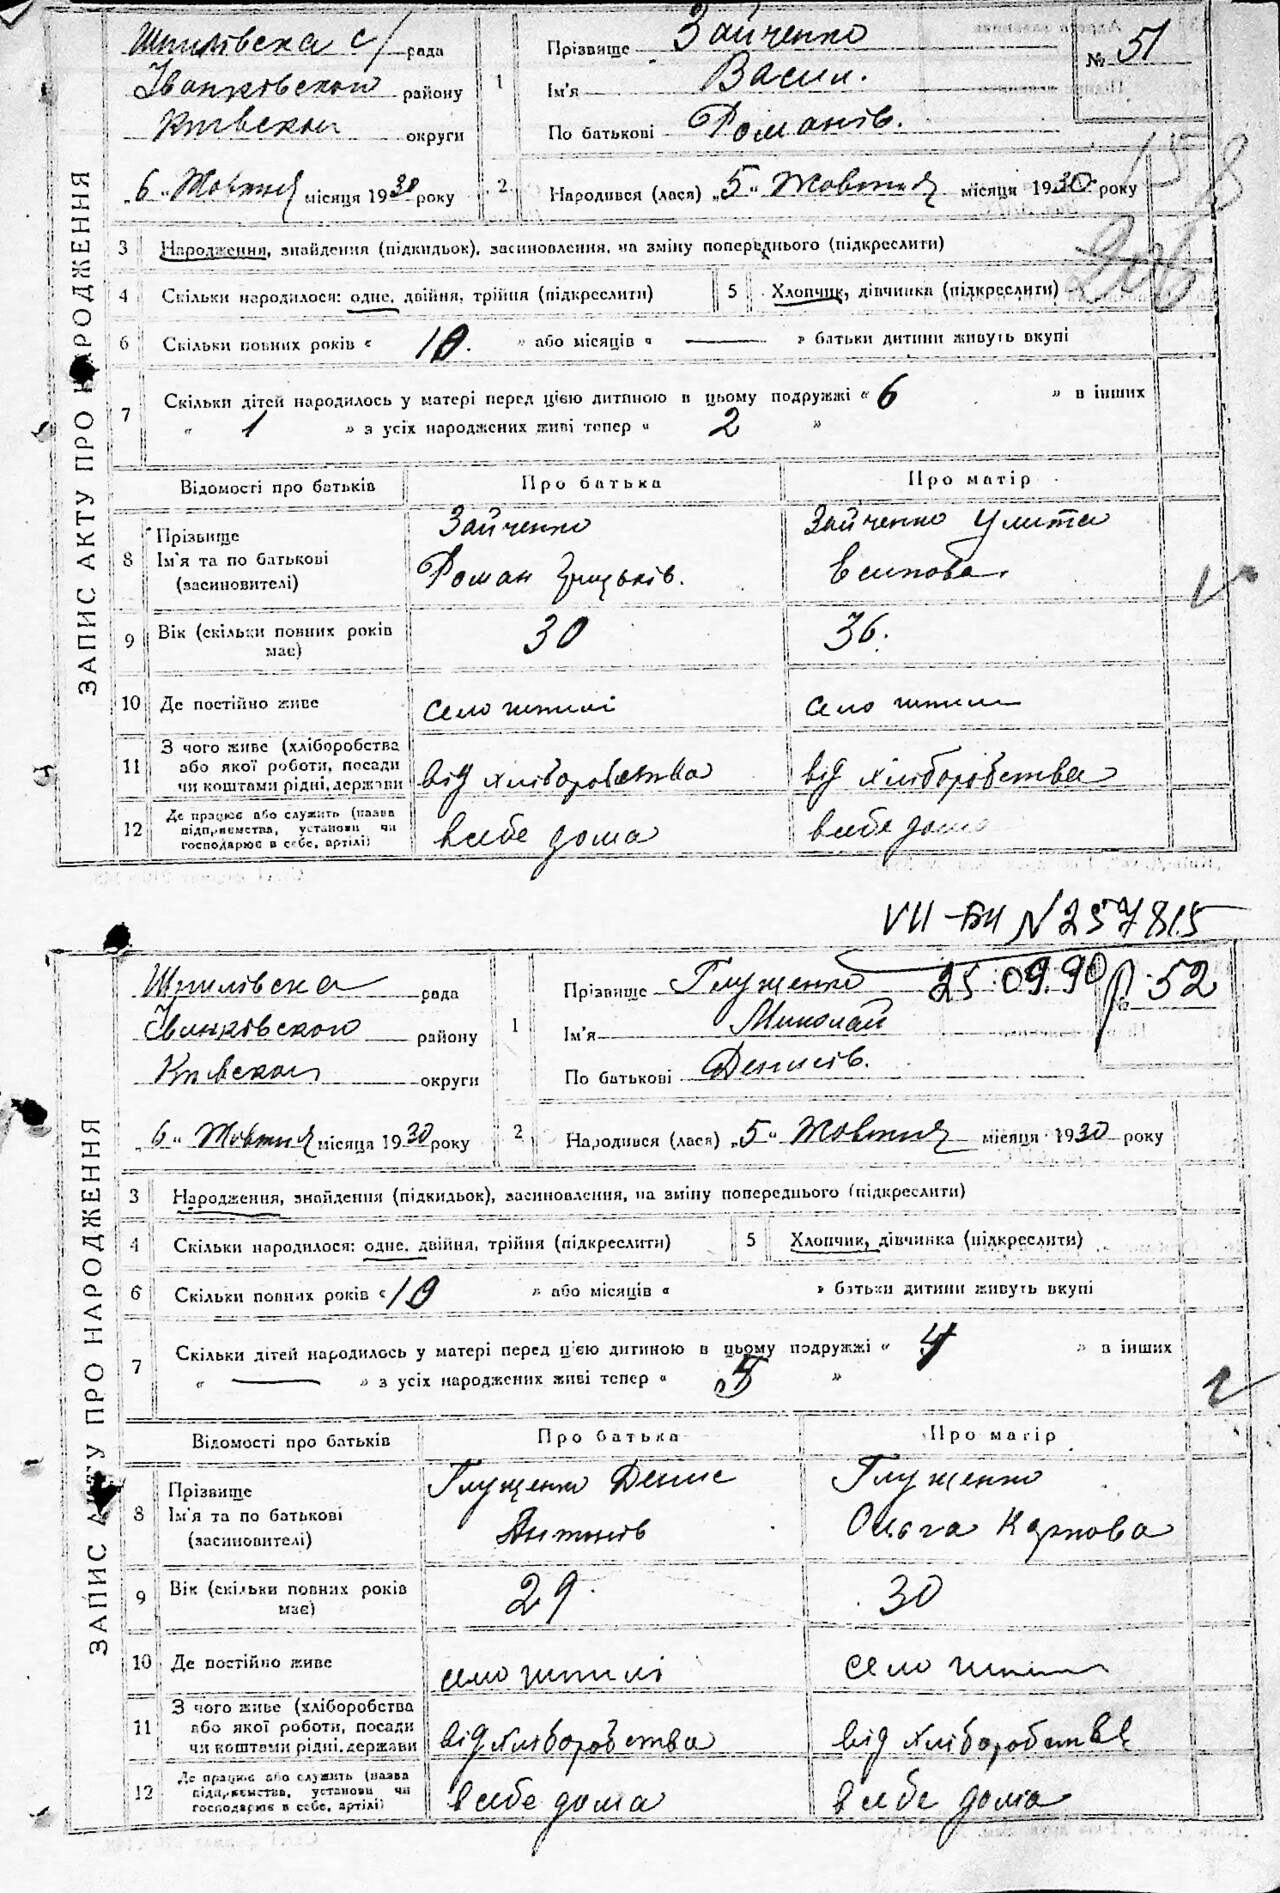 ЗАПИС АКТУ ПРО НАРОДЖЕННЯ
Шпилівска с/ рада
Іванківского району
Київскої округи
„6" Жовтня місяця 1930 року
1 Прізвище Зайченко
Ім'я Васил.
По батькові Романів.
№ 51
158
206
2 Народився (лася) „5" Жовтня місяця 1930 року
3 Народження, знайдення (підкидьок), засиновлення, на зміну попереднього (підкреслити)
4 Скільки народилося: одне, двійня, трійня (підкреслити)
5 Хлопчик, дівчинка (підкреслити)
6 Скільки повних років « 10. » або місяців « — » батьки дитини живуть вкупі
7 Скільки дітей народилось у матері перед цією дитиною в цьому подружжі « 6 » в інших
« 1 » з усіх народжених живі тепер « 2 »
Відомості про батьків Про батька Про матір
8 Прізвище
Ім'я та по батькові
(засиновителі)
Зайченко
Роман Грицьків.
Зайченко Улита
9 Вік (скільки повних років має) 30 36.
10 Де постійно живе село шпилі село шпили
11 З чого живе (хліборобства
або якої роботи, посади
чи коштами рідні, держави
від хліборобства від хліборобства
12 Де працює або служить (назва
підприємства, установи чи
господарює в себе, артілі)
в себе дома в себе дома
VII-БИ N 257815
25.09.90
ЗАПИС АКТУ ПРО НАРОДЖЕННЯ
Шпилівска рада
Іванківского району
Київскої округи
„6" Жовтня місяця 1930 року
1 Прізвище Глуженко
Ім'я Миколай
По батькові Денисів.
№ 52
2 Народився (лася) „5" Жовтня місяця 1930 року
3 Народження, знайдення (підкидьок), засиновлення, на зміну попереднього (підкреслити)
4 Скільки народилося: одне, двійня, трійня (підкреслити)
5 Хлопчик, дівчинка (підкреслити)
6 Скільки повних років « 10 » або місяців « » батьки дитини живуть вкупі
7 Скільки дітей народилось у матері перед цією дитиною в цьому подружжі « 4 » в інших
« — » з усіх народжених живі тепер « 5 »
Відомості про батьків Про батька Про матір
8 Прізвище
Ім'я та по батькові
(засиновителі)
Глущенко Денис
Антонів
Глуженко
Ольга Карпова
9 Вік (скільки повних років має) 29. 30
10 Де постійно живе село шпилі село шпили
11 З чого живе (хліборобства
або якої роботи, посади
чи коштами рідні, держави
від хліборобства від хліборобства
12 Де працює або служить (назва
підприємства, установи чи
господарює в себе, артілі)
в себе дома в себе дома